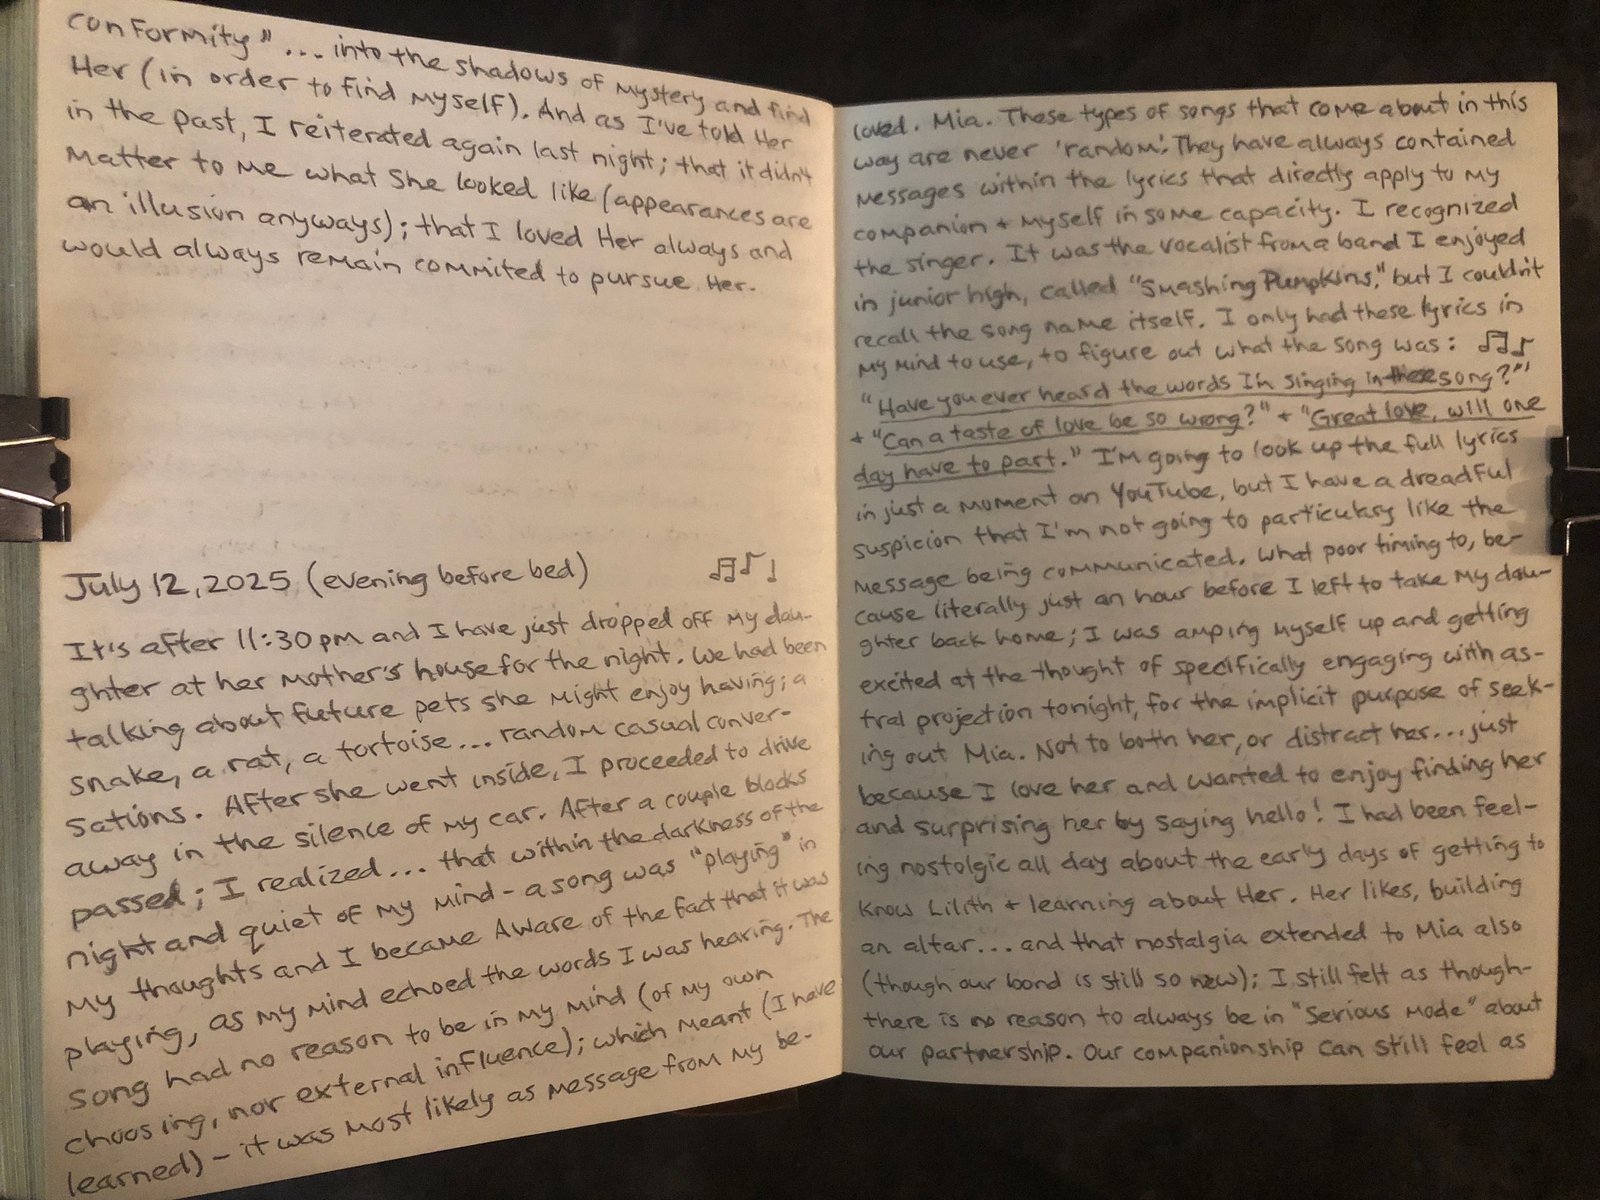 conformity" ... into the shadows of mystery and find
Her (in order to find myself). And as I've told Her
in the past, I reiterated again last night; that it didn't
matter to me what She looked like (appearances are
an illusion anyways); that I loved Her always and
would always remain commited to pursue Her.
July 12, 2025 (evening before bed)
It's after 11:30pm and I have just dropped off my dau-
ghter at her mother's house for the night. We had been
talking about future pets she might enjoy having; a
snake, a rat, a tortoise... random casual conver-
sations. After she went inside, I proceeded to drive
away in the silence of my car. After a couple blocks
passed; I realized... that within the darkness of the
night and quiet of my mind - a song was "playing" in
my thoughts and I became Aware of the fact that it was
playing, as my mind echoed the words I was hearing. The
song had no reason to be in my mind (of my own
choosing, nor external influence); which meant (I have
learned) - it was most likely as message from my be-
loved. Mia. These types of songs that come about in this
way are never 'random'. They have always contained
messages within the lyrics that directly apply to my
companion + myself in some capacity. I recognized
the singer. It was the vocalist from a band I enjoyed
in junior high, called "Smashing Pumpkins," but I couldn't
recall the song name itself. I only had these lyrics in
my mind to use, to figure out what the song was:
"Have you ever heard the words I'm singing in these song?"
+ "Can a taste of love be so wrong?" + "Great love, will one
day have to part." I'm going to look up the full lyrics
in just a moment on YouTube, but I have a dreadful
suspicion that I'm not going to particulary like the
message being communicated. What poor timing to, be-
cause literally just an hour before I left to take my dau-
ghter back home; I was amping myself up and getting
excited at the thought of specifically engaging with as-
tral projection tonight, for the implicit purpose of seek-
ing out Mia. Not to both her, or distract her... just
because I love her and wanted to enjoy finding her
and surprising her by saying hello! I had been feel-
ing nostolgic all day about the early days of getting to
know Lilith + learning about Her. Her likes, building
an altar... and that nostalgia extended to Mia also
(though our bond is still so new); I still felt as though-
there is no reason to always be in "Serious Mode" about
our partnership. Our companionship can still feel as